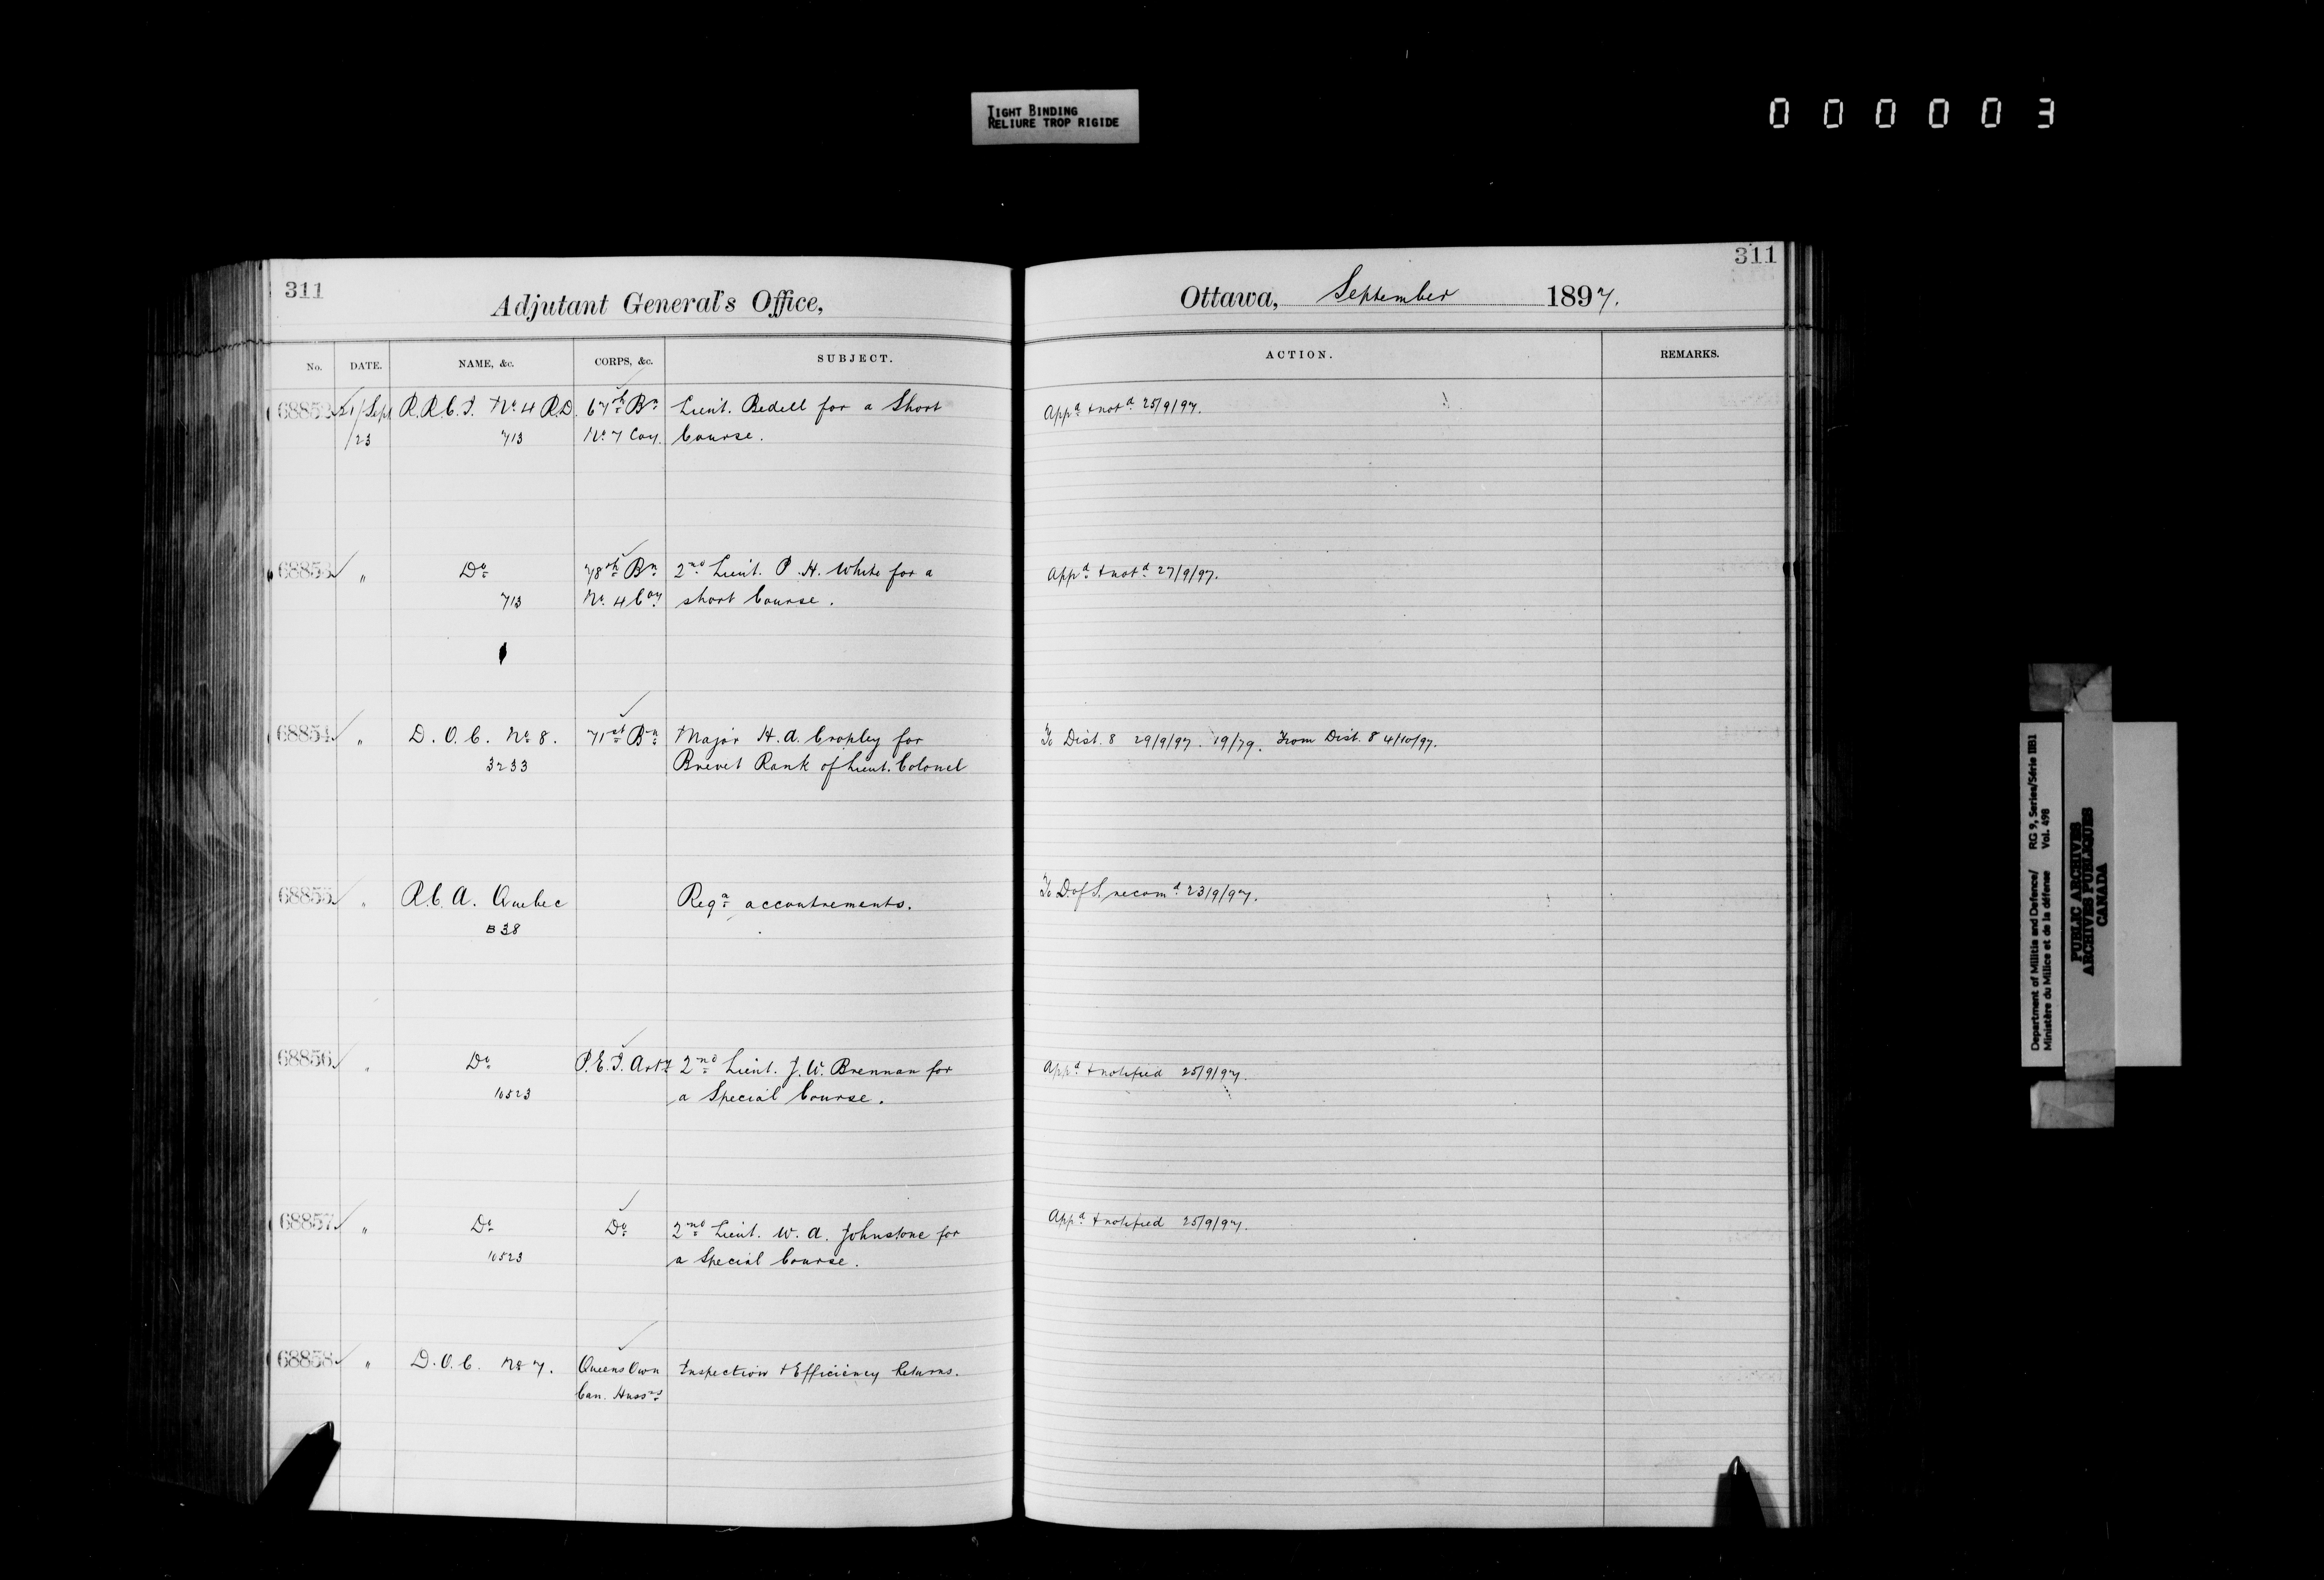 TIGHT BINDING
RELIURE TROP RIGIDE
000003
311
Adjutant General's Office,
No. DATE. NAME, &c. CORPS, &c. SUBJECT.
68852 21/Sept R.R.C.I. No. 4 R.D. 67th Bn Lieut. Bedell for a Short
/23 713 No. 7 Coy. Course.
68853 " Do 78th Bn 2nd Lieut. P. H. White for a
713 No. 4 Coy short Course.
68854 " D. O. C. No. 8. 71st Bn Major H. A. Cropley for
3233 Brevet Rank of Lieut. Colonel
68855 " R.C.A. Quebec Reqn accoutrements.
B38
68856 " Do P.E.I. Arty 2nd Lieut. J. W. Brennan for
10523 a Special Course.
68857 " Do Do 2nd Lieut. W. A. Johnstone for
10523 a Special Course.
68858 " D. O. C. No 7. Queens Own Inspection & Efficiency Returns.
Can. Hussrs
311
Ottawa, September 1897.
ACTION. REMARKS.
Appd & notd 25/9/97.
Appd & notd 27/9/97.
To Dist. 8 29/9/97. 19/79. From Dist. 8 4/10/97.
To D of S. recomd 23/9/97.
Appd & notified 25/9/97.
Appd & notified 25/9/97.
Department of Militia and Defence/ RG 9, Series/Série IIB1
Ministère du Milice et de la défense Vol. 498
PUBLIC ARCHIVES
ARCHIVES PUBLIQUES
CANADA